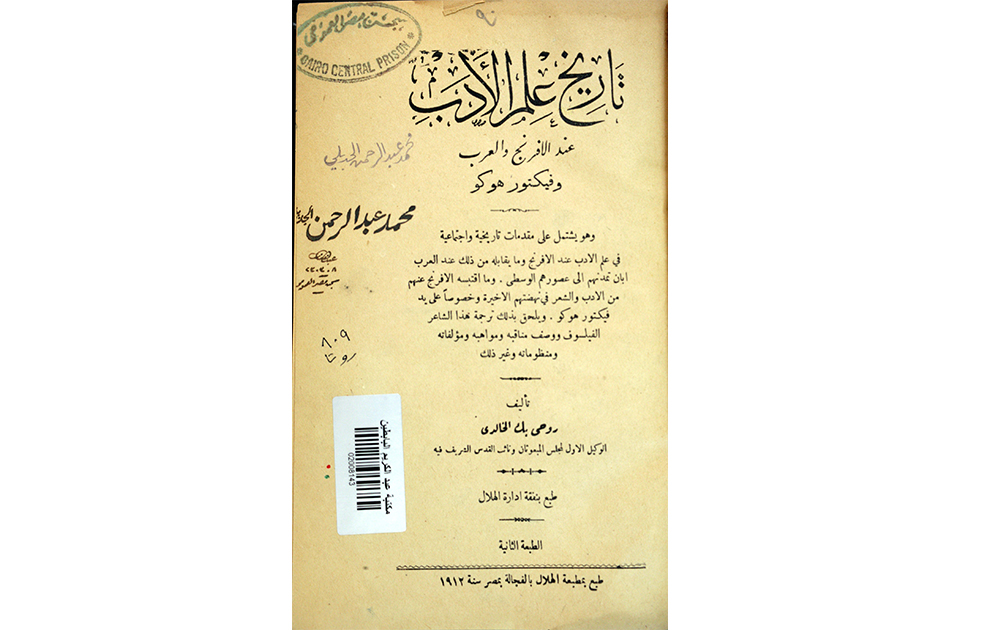 CAIRO CENTRAL PRISON
تَاريخ عِلم الأدَب
عند الافرنج والعرب
وفيكتور هوكو
محمد عبد الرحمن
محمد عبد الرحمن
وهو يشتمل على مقدمات تاريخية واجتماعية
في علم الادب عند الافرنج وما يقابله من ذلك عند العرب
ابان تمدنهم الى عصورهم الوسطى . وما اقتبسه الافرنج عنهم
من الادب والشعر في نهضتهم الاخيرة وخصوصاً على يد
فيكتور هوكو . ويلحق بذلك ترجمة هذا الشاعر
الفيلسوف ووصف مناقبه ومواهبه ومؤلفاته
ومنظوماته وغير ذلك
٨٠٩
تأليف
روحي بك الخالدي
الوكيل الاول لمجلس المبعوثان ونائب القدس الشريف فيه
مكتبة عبد الكريم البابطين
02008143
طبع بنفقة ادارة الهلال
الطبعة الثانية
طبع بمطبعة الهلال بالفجالة بمصر سنة ١٩١٢